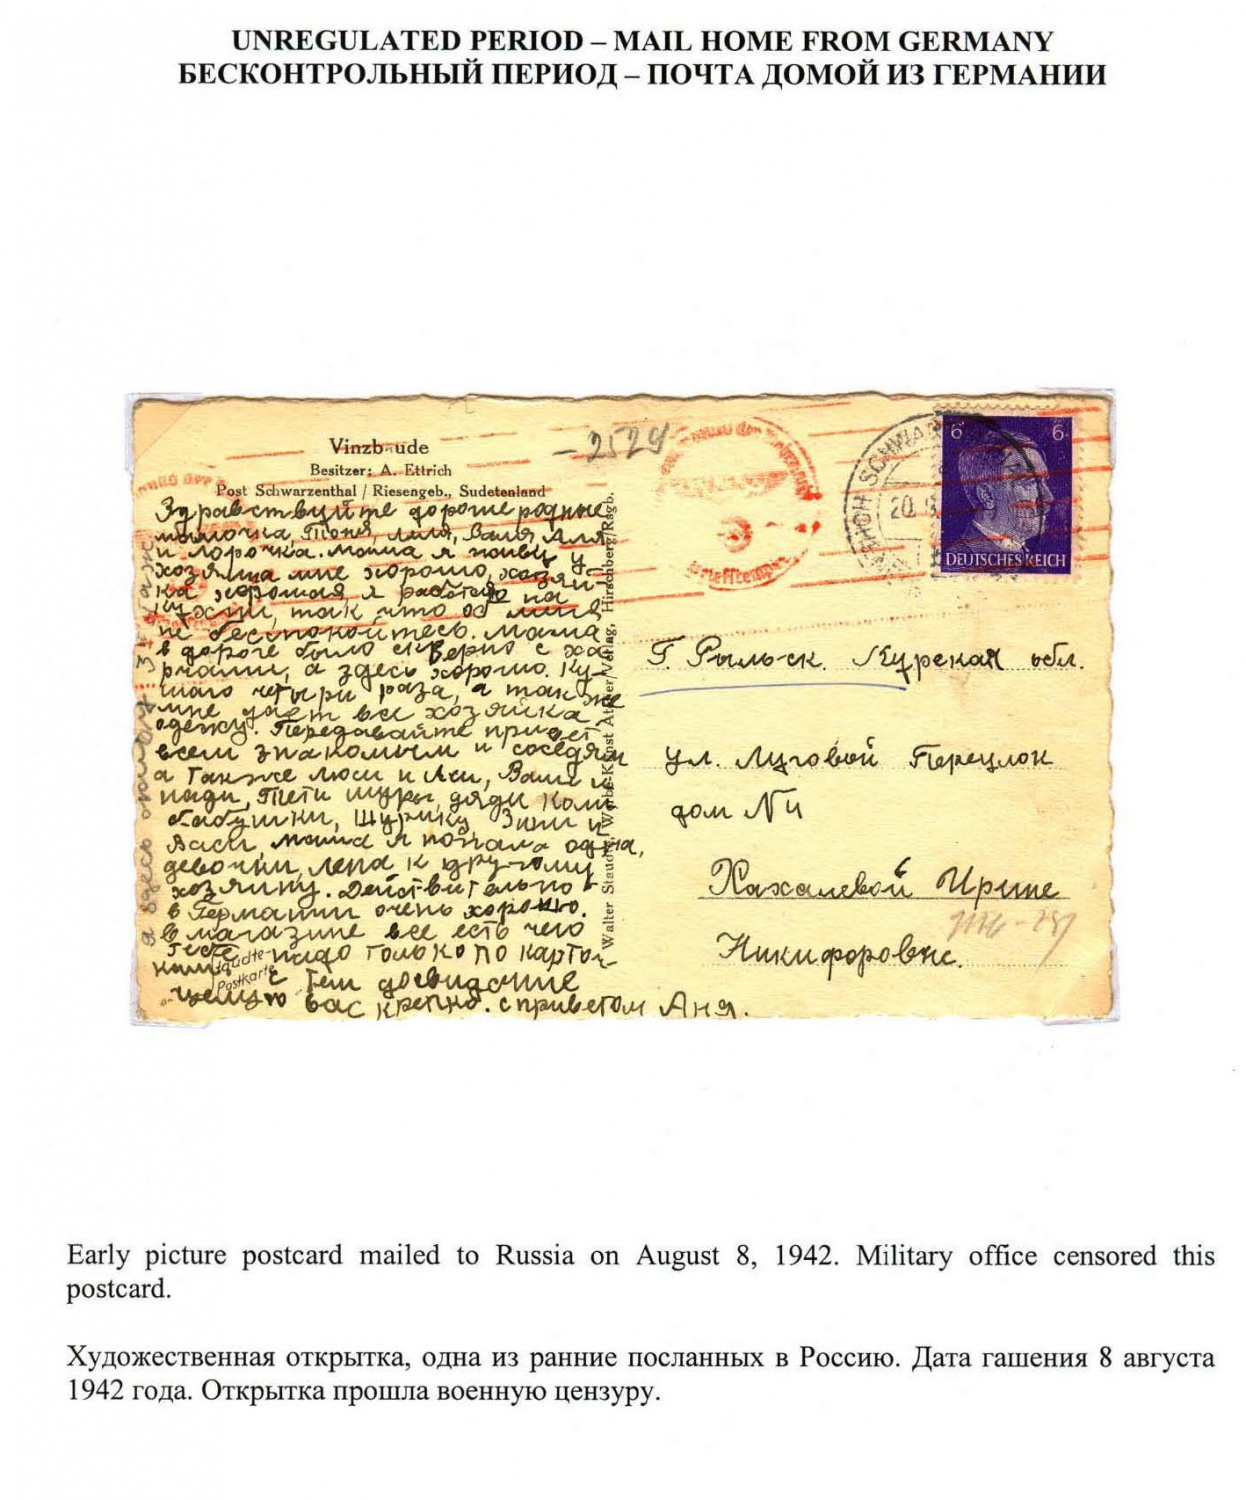 UNREGULATED PERIOD – MAIL HOME FROM GERMANY
БЕСКОНТРОЛЬНЫЙ ПЕРИОД – ПОЧТА ДОМОЙ ИЗ ГЕРМАНИИ
Vinzbaude
Besitzer: A. Ettrich
Post Schwarzenthal / Riesengeb., Sudetenland
- 2529
20.
6 6
DEUTSCHES REICH
Здравствуйте дорогие родные
мамочка, Тоня, Лиля, Ваня, Аля
и Лорочка. Мама я живу у
хозяина мне хорошо, хозяй-
ка хорошая, я работаю на
кухни, так что об мине
не беспокойтесь. Мама
в дороге было скверно с ха
рчами, а здесь хорошо. Ку-
шаю четыри раза, а так же
мне дает все хозяйка
одежу. Передавайте привет
всем знакомым и соседям
а также Люси и Аси, Вани и
Нади, Тети Шуры, дяди Коли
бабушки, Шурику Зини и
Васи, мама я попала одна,
девочки, Лена к другому
хозяину. Действительно
в Германии очень хорошо.
в магазине все есть чего
тебе надо только по карточ-
кам с тем досвидание
целую вас крепко. с приветом Аня.
а здесь
Postkarte
Г. Рыльск. Курская обл.
ул. Луговой Переулок
дом № 4
Хахалевой Ирине
Никифоровне.
Early picture postcard mailed to Russia on August 8, 1942. Military office censored this
postcard.
Художественная открытка, одна из ранние посланных в Россию. Дата гашения 8 августа
1942 года. Открытка прошла военную цензуру.